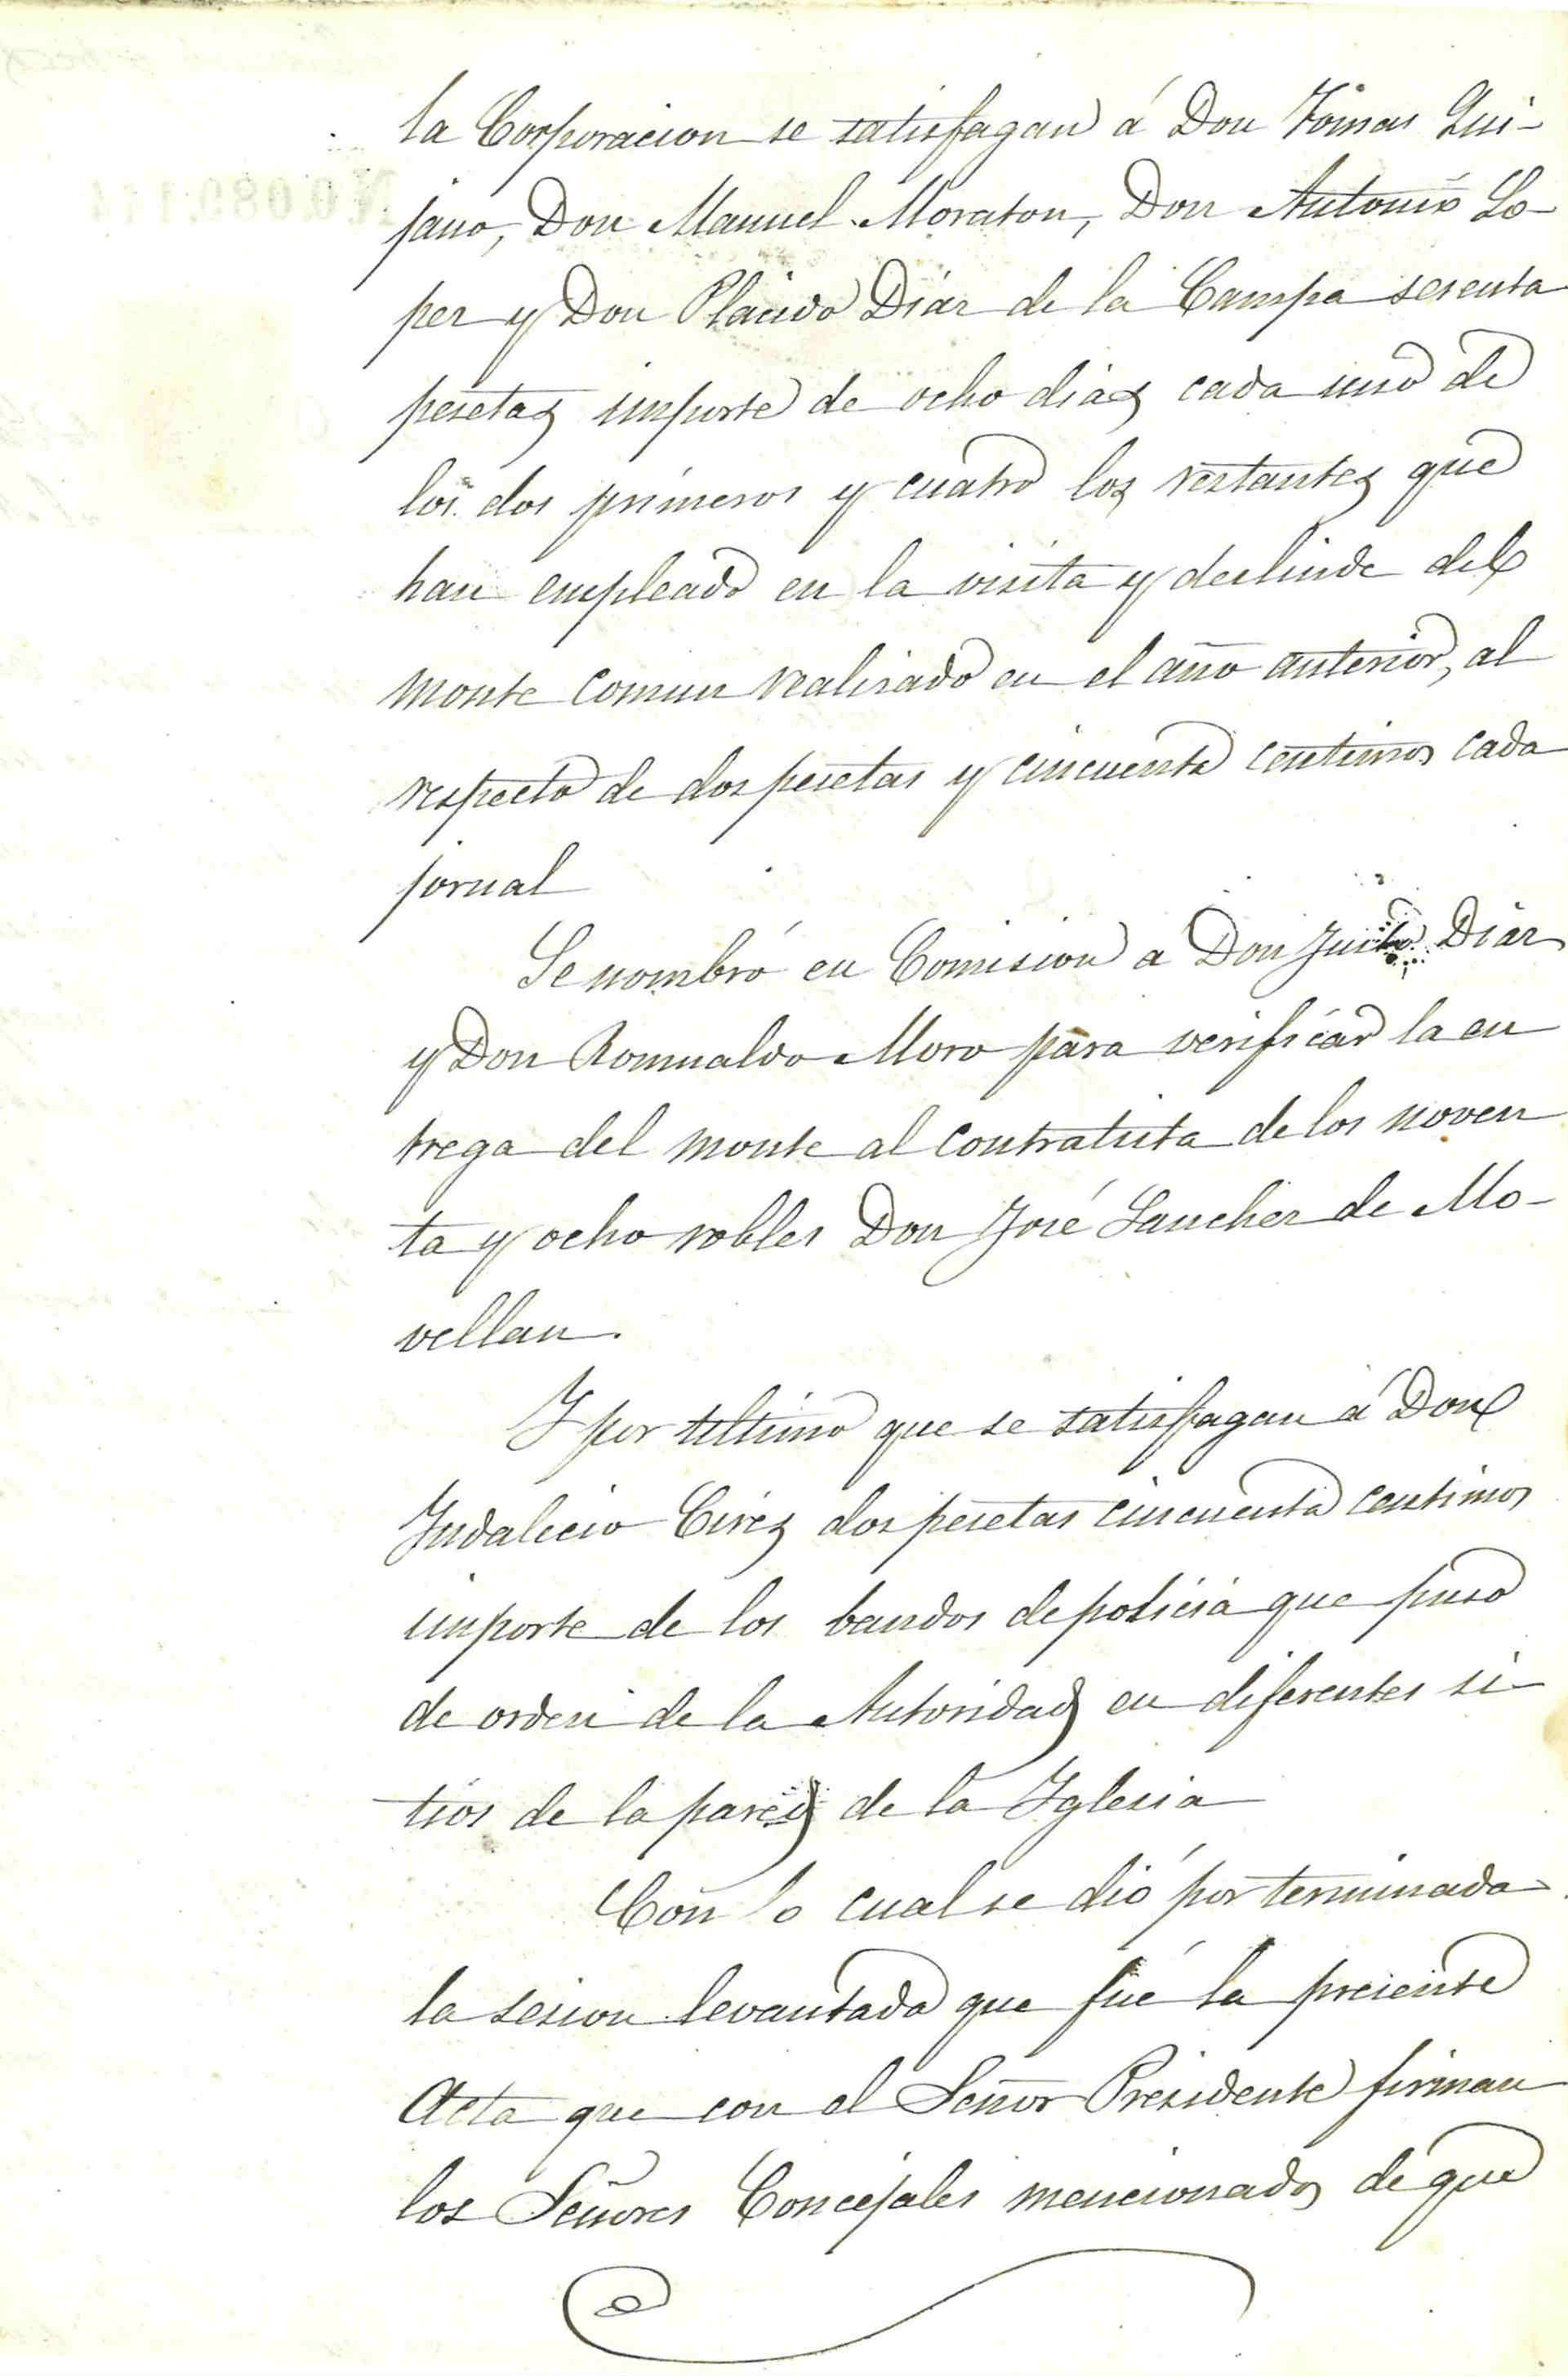 la Corporacion se satisfagan á Don Tomas Qui-
jano, Don Manuel Moraton, Don Antonio Lo-
pez y Don Placido Diáz de la Campa sesenta
pesetas importe de ocho dias cada uno de
los dos primeros y cuatro los restantes que
han empleado en la visita y deslinde del
monte comun realizado en el año anterior, al
respecto de dos pesetas y cincuenta centimos cada
jornal
Se nombró en Comision a Don Justo Diaz
y Don Romualdo Moro para verificar la en
trega del monte al contratista de los noven
ta y ocho robles Don José Sanchez de Mo-
vellan.
Y por último que se satisfagan á Don
Indalecio Cires dos pesetas cincuenta centimos
importe de los bandos de policia que puso
de orden de la Autoridad en diferentes si-
tios de la pared de la Iglesia
Con lo cual se dió por terminada
la sesion levantada que fué la presente
Acta que con el Señor Presidente firman
los Señores Concejales mencionados de que
N.0.089.114